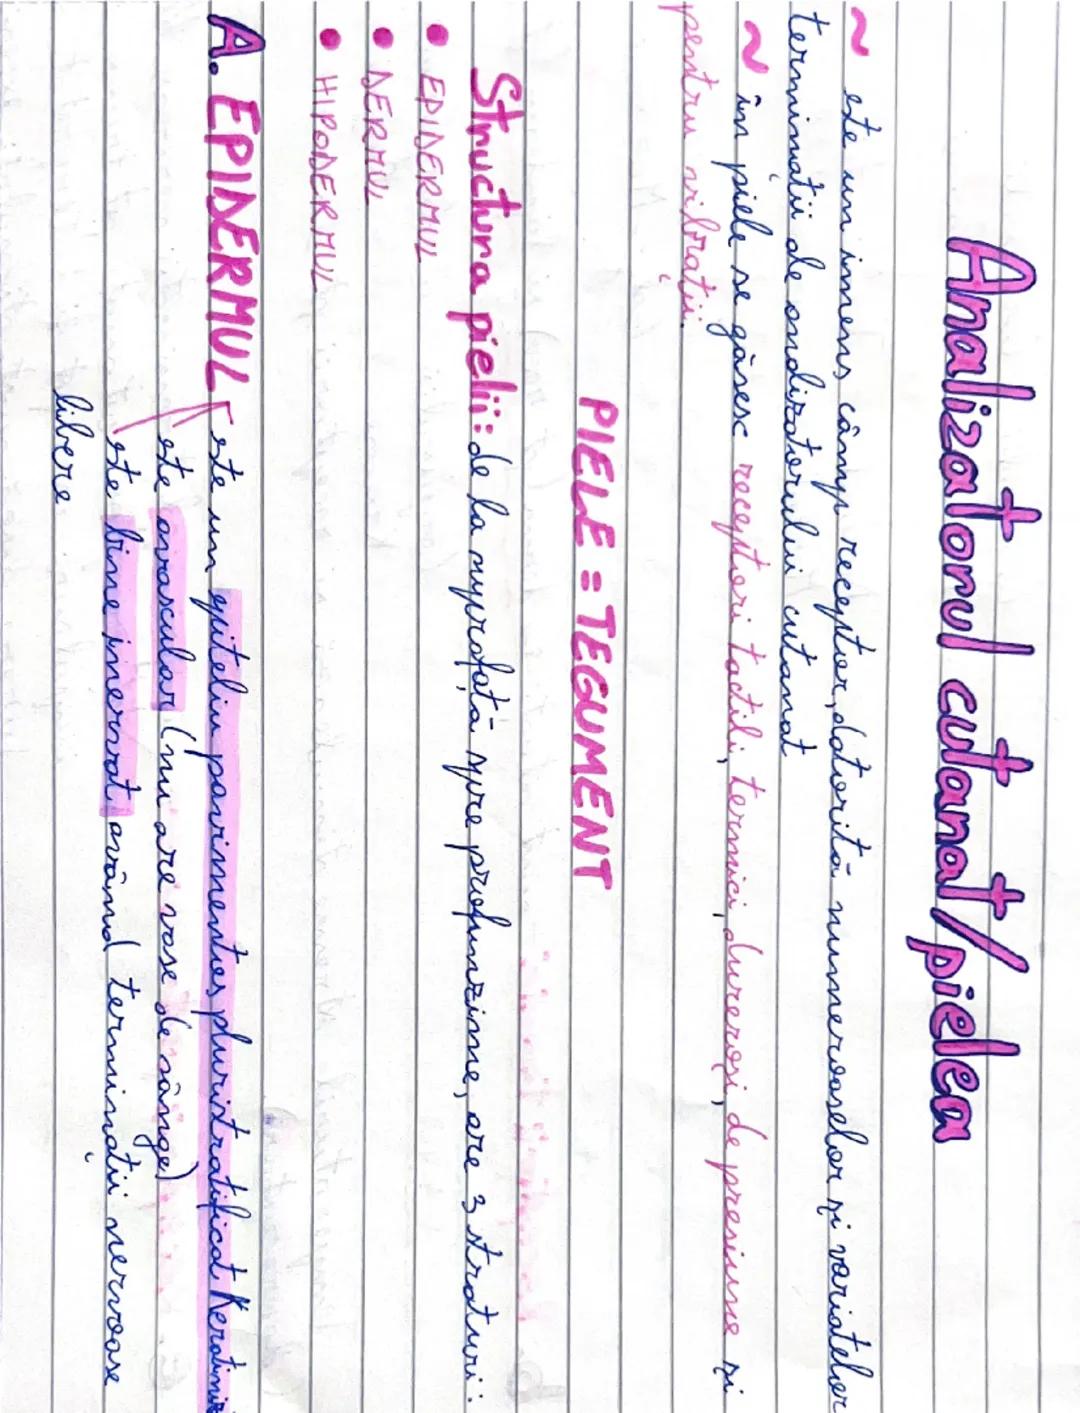 Analizatorul cutanat/pielea
~ este un imens câmp receptor, datorită numeroaselor și variatelor
terminații de analizatorului cutanat
~ în piele se găsesc receptori tactili, termici, dureroși, de presiune și
pentru vibrații.
PIELE = TEGUMENT
Structura pielii: de la suprafață spre profunzime, are 3 straturi:
• EPIDERMUL
• DERMUL
• HIPODERMUL
A. EPIDERMUL este un epiteliu pavimentos pluristratificat keratiniz
este avascular (nu are vase de sânge)
este bine inervat, având terminații nervoase
libere.